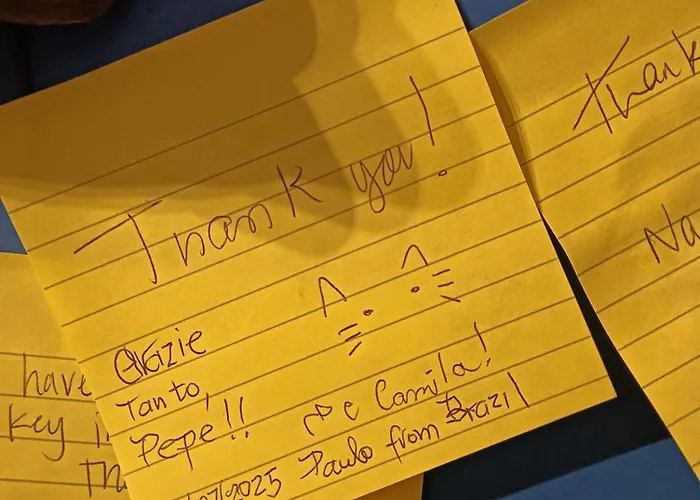 Thank you!
Grazie
Tanto,
Pepe!!
De Camila!
/07/2025 Paulo from Brazil
Thank
Na
have
Key i
Th